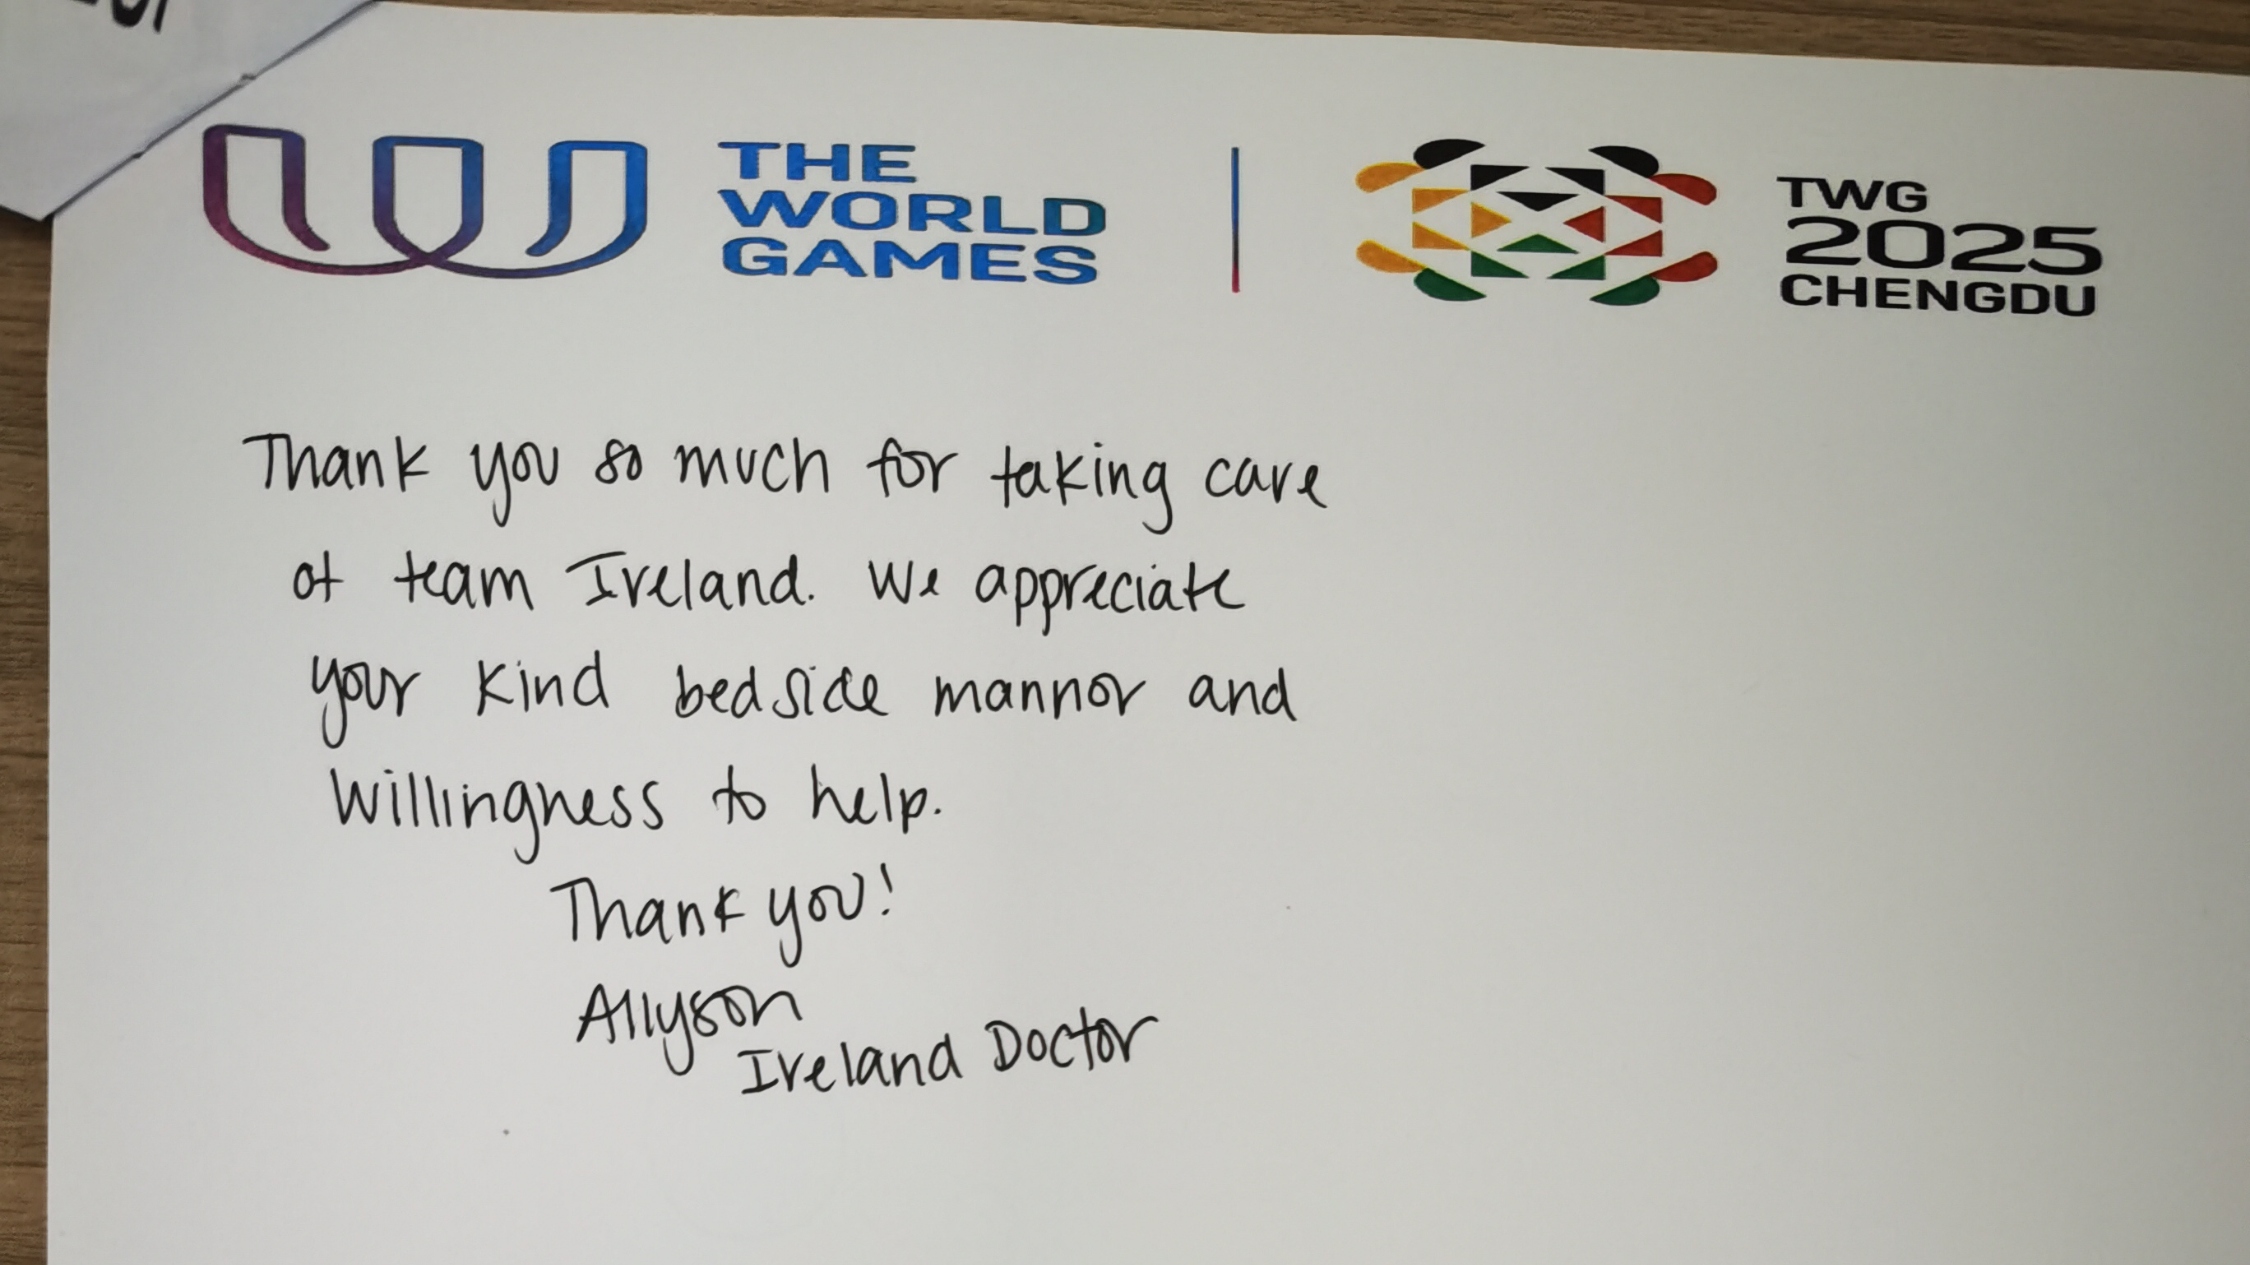 THE
WORLD
GAMES
TWG
2025
CHENGDU
Thank you so much for taking care
of team Ireland. We appreciate
your kind bedside mannor and
willingness to help.
Thank you!
Allyson
Ireland Doctor